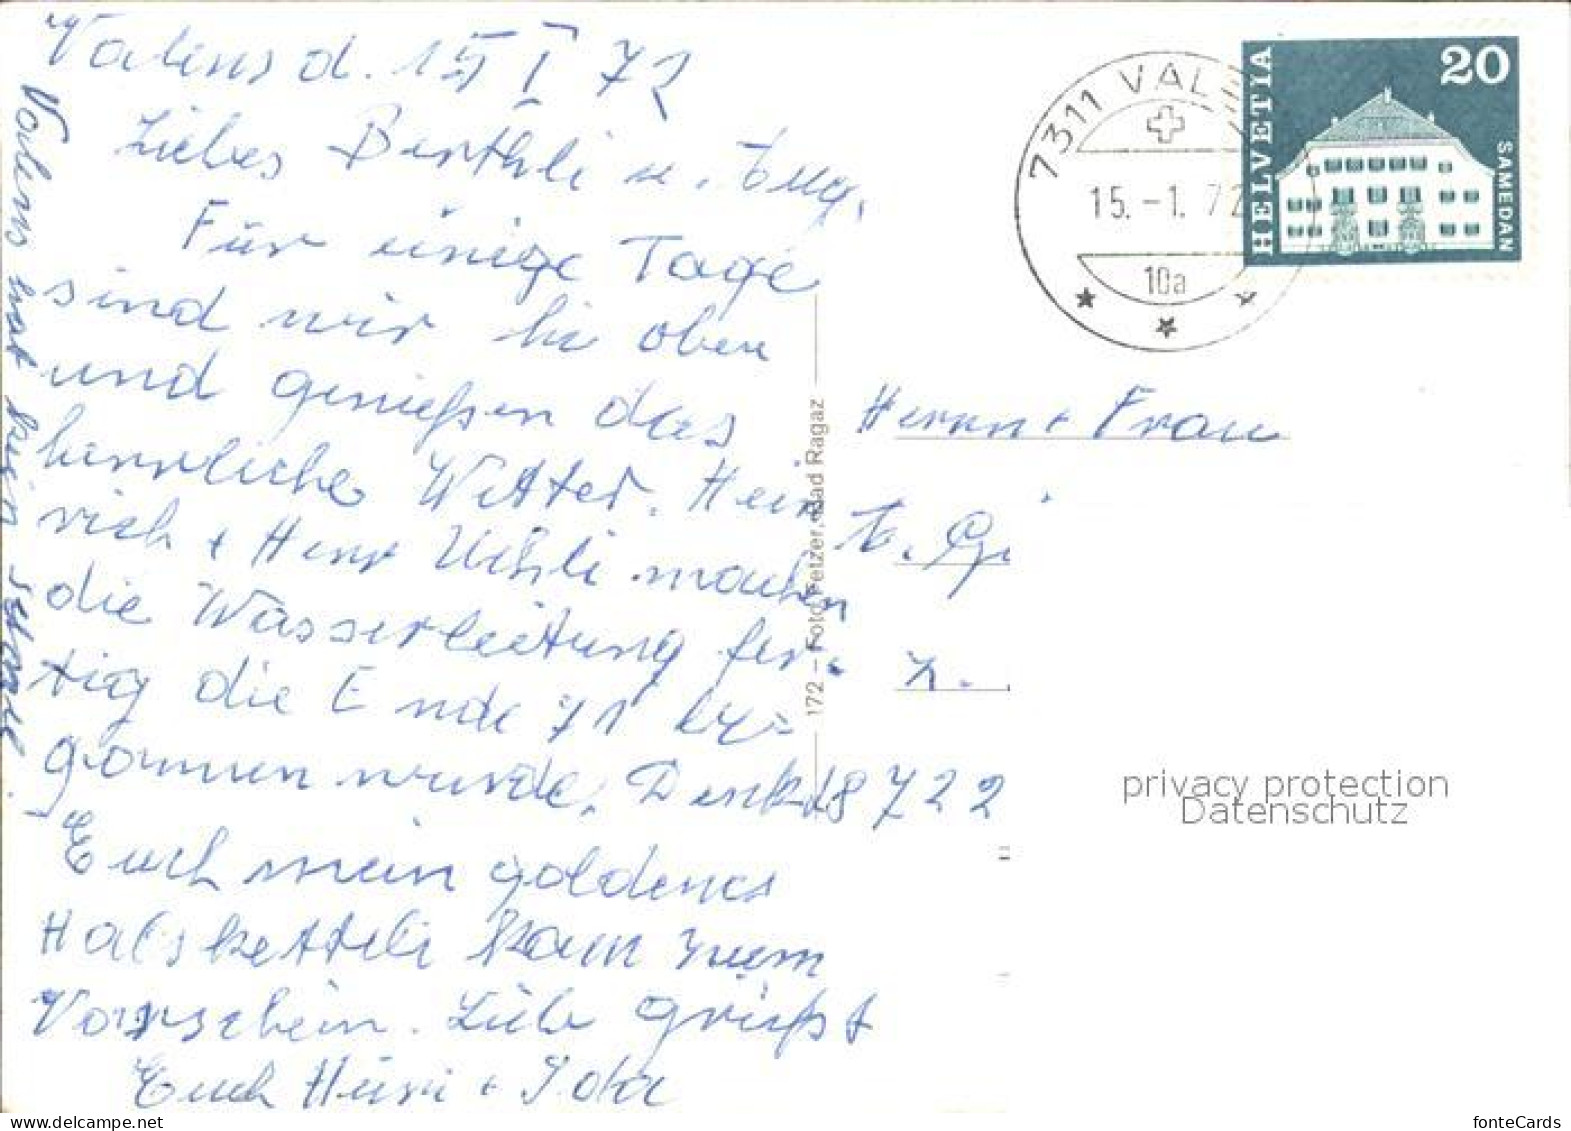 Valens d. 15 I 72
Liebes Berthli u. Eug.
Für einige Tage
sind wir hie oben
und genießen das
herrliche Wetter. Hein
rich + Herr Uehli machen
die Wasserleitung fer-
tig die Ende 71 be=
gonnen wurde. Denkt
Euch mein goldenes
Halsketteli kam zum
Vorschein. Liebe grüßt
Euch Heiri + Ida
Valens hat kein
7311 VAL
15.-1. 72
10a
HELVETIA
20
SAMEDAN
172 – Foto Fetzer, Bad Ragaz
Herrn + Frau
E.
Z.
8722
privacy protection
Datenschutz
www.delcampe.net
fonteCards